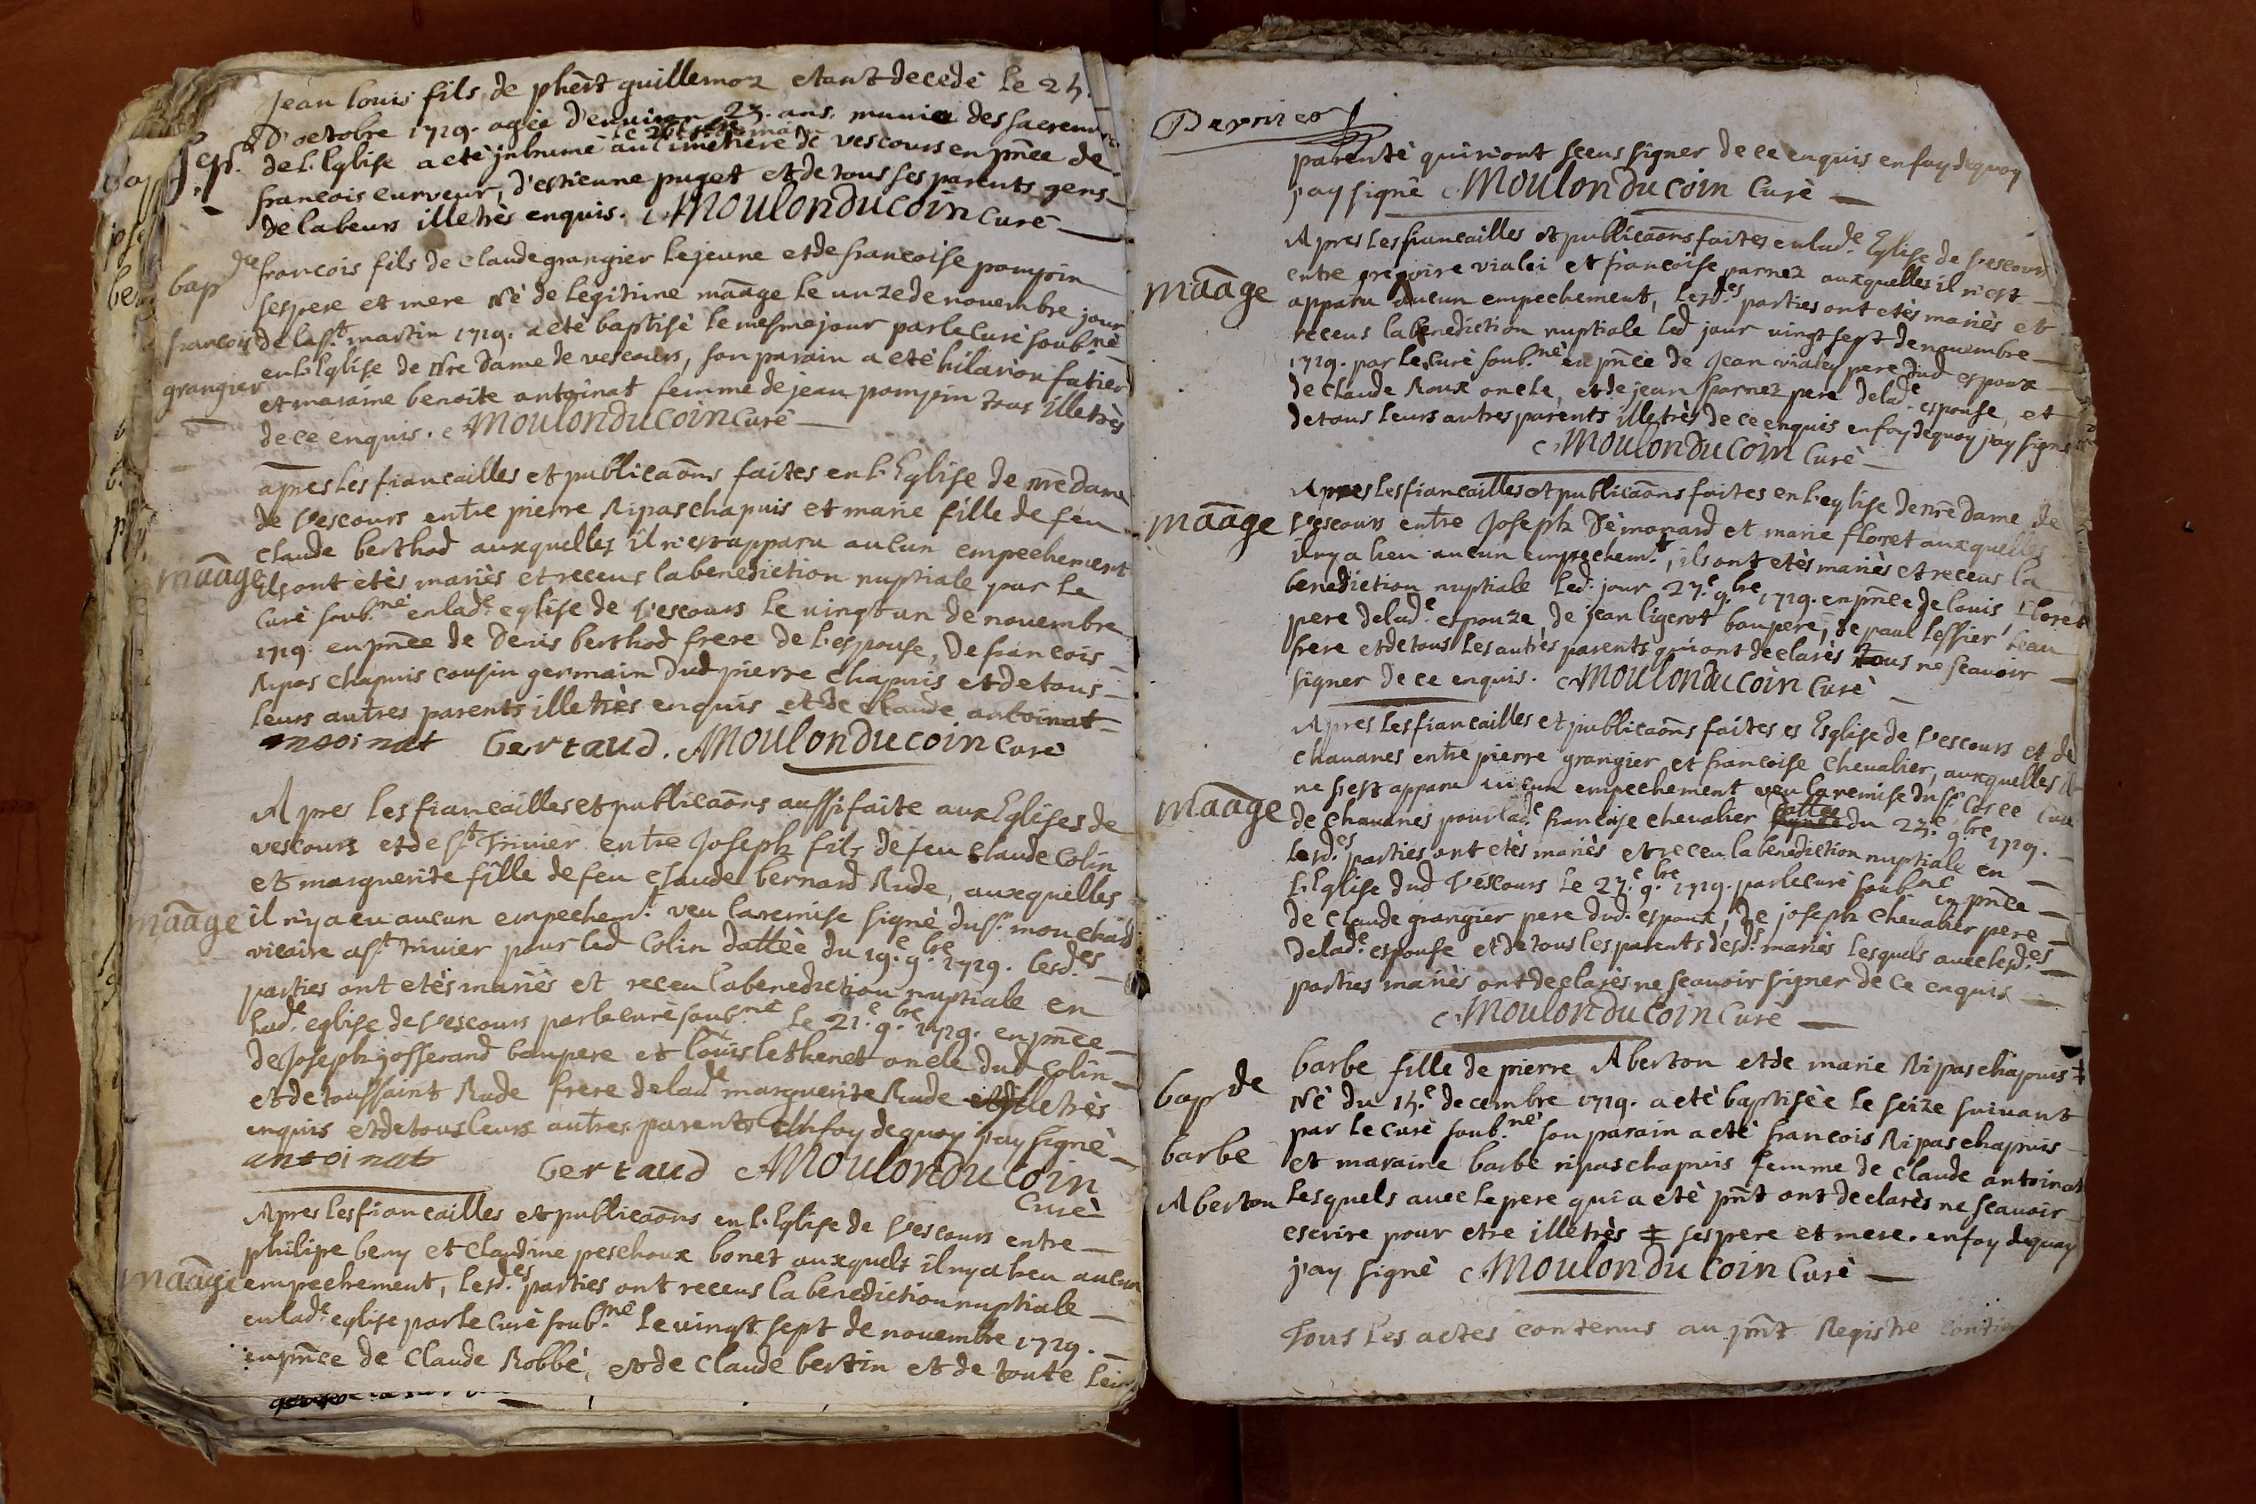 Jean louis fils de phert guillemoz etant decedé le 24.
D'octobre 1719. agée d'environ 23. ans. munie des sacrem
le 26
Sep. de l'Eglise a eté jnhumé au cimetiere de vescours en pnce de
francois curveur, d'estienne puget et de tous ses parents gens
de labeurs illetrés enquis. Moulonducoin Curé
francois fils de claude grangier le jeune et de francoise pompin
bap de
ses pere et mere Né de legitime maage le unze de novembre jour
francois de la st. martin 1719. a eté baptisé le mesme jour par le Curé soub.né
en l'Eglise de Nre Dame de vescours, son parain a eté hilarion futier
grangier et maraine benoite antoinat femme de jean pompin tous illetrés
de ce enquis. Moulonducoin Curé
apres les fiancailles et publicaons faites en l'Eglise de nre dame
de Vescours entre pierre Ripas chapuis et marie fille de feu
claude berthod auxquelles il n'est apparu aucun empechement
maage ils ont etés mariés et receus la benediction nuptiale par le
Curé soub.né en lade eglise de Vescours le vingt un de novembre
1719. en pnce de Denis berthod frere de l'espouse, de francois
Ripas chapuis cousin germain dud pierre chapuis et de tous
leurs autres parents illetrés enquis et de claude antoinat
antoinat Gertaud. Moulonducoin Curé
Apres les fiancailles et publicaons aussi faite aux Eglises de
vescours et de st. Trivier entre Joseph fils de feu Claude Colin
et marguerite fille de feu claude bernard Rude, auxquelles
maage il n'y a eu aucun empechem.t veu la remise signé du sr. mouchad
vicaire a st. trivier pour led Colin dattée du 19.e 9.bre 1719. lesd.es
parties ont etés mariés et receu la benediction nuptiale en
lade. eglise de Vescours par le curé soub.né le 21.e 9.bre 1719. en pnce
de Joseph josserand beaupere et louis lethenet oncle dud Colin
et de toussaint Rude frere de lade marguerite Rude illetrés
enquis et de tous leurs autres parents En foy de quoy j'ay signé
antoinat Gertaud Moulonducoin
Curé
Apres les fiancailles et publicaons en l'Eglise de Vescours entre
philipe beny et Claudine peschoux bonet auxquels il ny a heu aucun
maage empechement, lesd.es parties ont receus la benediction nuptiale
en lade eglise par le Curé soub.né le vingt sept de novembre 1719.
en pnce de Claude Robbé, et de Claude bertin et de toute leur
Dernier
parenté qui n'ont sceus signer de ce enquis en foy de quoy
j'ay signé Moulonducoin Curé
Apres les fiancailles et publicaons faites en lade Eglise de Vescours
entre gregoire vialei et francoise parnez auxquelles il n'est
maage apparu aucun empechement, lesd.es parties ont etés mariés et
receus la benediction nuptiale led jour vingt sept de novembre
1719. par le Curé soub.né en pnce de Jean vialey pere dud espoux
de Claude Roux oncle, et de jean parnez pere de lade espouse, et
de tous leurs autres parents illetrés de ce enquis en foy de quoy j'ay signé
Moulonducoin Curé
Apres les fiancailles et publicaons faites en l'eglise de nre dame de
maage Vescours entre Joseph Démonard et marie floret auxquelles
il ny a heu aucun empechem.t, ils ont etés mariés et receus la
benediction nuptiale led. jour 27.e 9.bre 1719. en pnce de louis floret
pere de lade espouze, de jean ligerot baupere, de paul lessier beau
frere et de tous les autres parents qui ont declarés tous ne scavoir
signer de ce enquis. Moulonducoin Curé
Apres les fiancailles et publicaons faites es Esglise de Vescours et de
chavanes entre pierre grangier et francoise chevalier, auxquelles il
ne s'est apparu aucun empechement veu la remise du sr. Curé
maage de chavanes pour lade. francoise chevalier dattée du 23.e 9.bre 1719.
lesd.es parties ont etés mariés et receu la benediction nuptiale en
l'Eglise dud Vescours le 27.e 9.bre 1719. par le curé soub.né en pnce
de Claude grangier pere dud. espoux, de joseph chevalier pere
de lade. espouse et de tous les parents desd. mariés lesquels avec lesd.es
parties mariés ont declarés ne scavoir signer de ce enquis
Moulonducoin Curé
barbe fille de pierre Aberton et de marie Ripas chapuis ‡
bap de Né du 15.e decembre 1719. a eté baptisée le seize suivant
par le curé soub.né son parain a eté francois Ripas chapuis
barbe et maraine barbe ripas chapuis femme de Claude antoinat
Aberton lesquels avec le pere qui a eté pnt ont declarés ne scavoir
escrire pour etre illetrés ‡ ses pere et mere. en foy de quoy
j'ay signé Moulonducoin Curé
Tous les actes contenus au pnt Registre